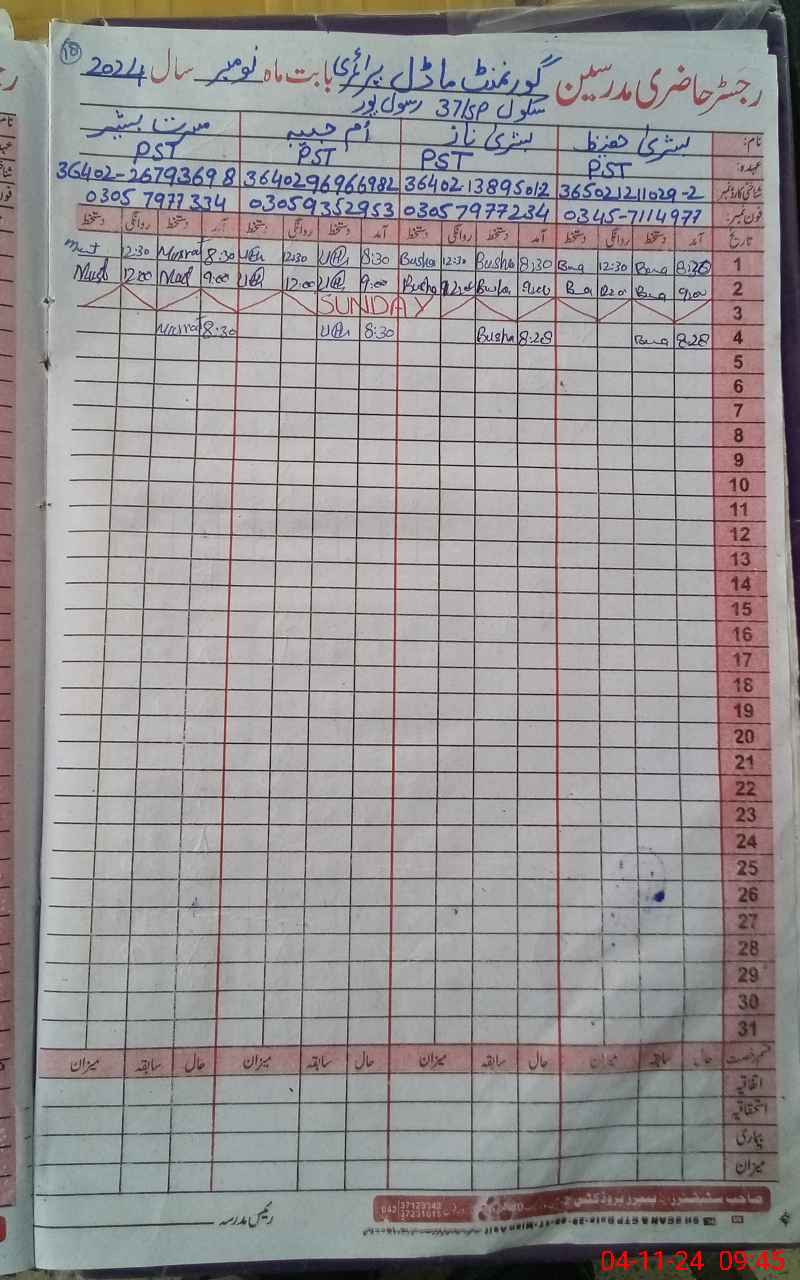 18
رجسٹر حاضری مدرسین گورنمنٹ ماڈل پرائمری بابت ماہ نومبر سال 2024
سکول 37/SP رسول پور
نام: بشریٰ حفیظ بشریٰ ناز اُم حبیبہ مسرت بشیر
عہدہ: PST PST PST PST
شناختی کارڈ نمبر 365021211029-2 3640213895012 3640296966982 36402-26793698
فون نمبر: 0345-7114977 03057977234 03059352953 03057977334
تاریخ آمد دستخط روانگی دستخط آمد دستخط روانگی دستخط آمد دستخط روانگی دستخط آمد دستخط روانگی دستخط
1 8:30 12:30 8:30 Bushra 12:30 Bushra 8:30 12:30 8:30 Musrat 12:30
2 9:00 12:00 9:00 12:00 9:00 12:00 9:00 12:00
3 SUNDAY
4 8:28 8:28 Bushra 8:30 8:30 Musrat
5
6
7
8
9
10
11
12
13
14
15
16
17
18
19
20
21
22
23
24
25
26
27
28
29
30
31
قسم رخصت حال سابقہ میزان حال سابقہ میزان حال سابقہ میزان حال سابقہ میزان
اتفاقیہ
استحقاقیہ
بیماری
میزان
رئیس مدرسہ
04-11-24 09:45